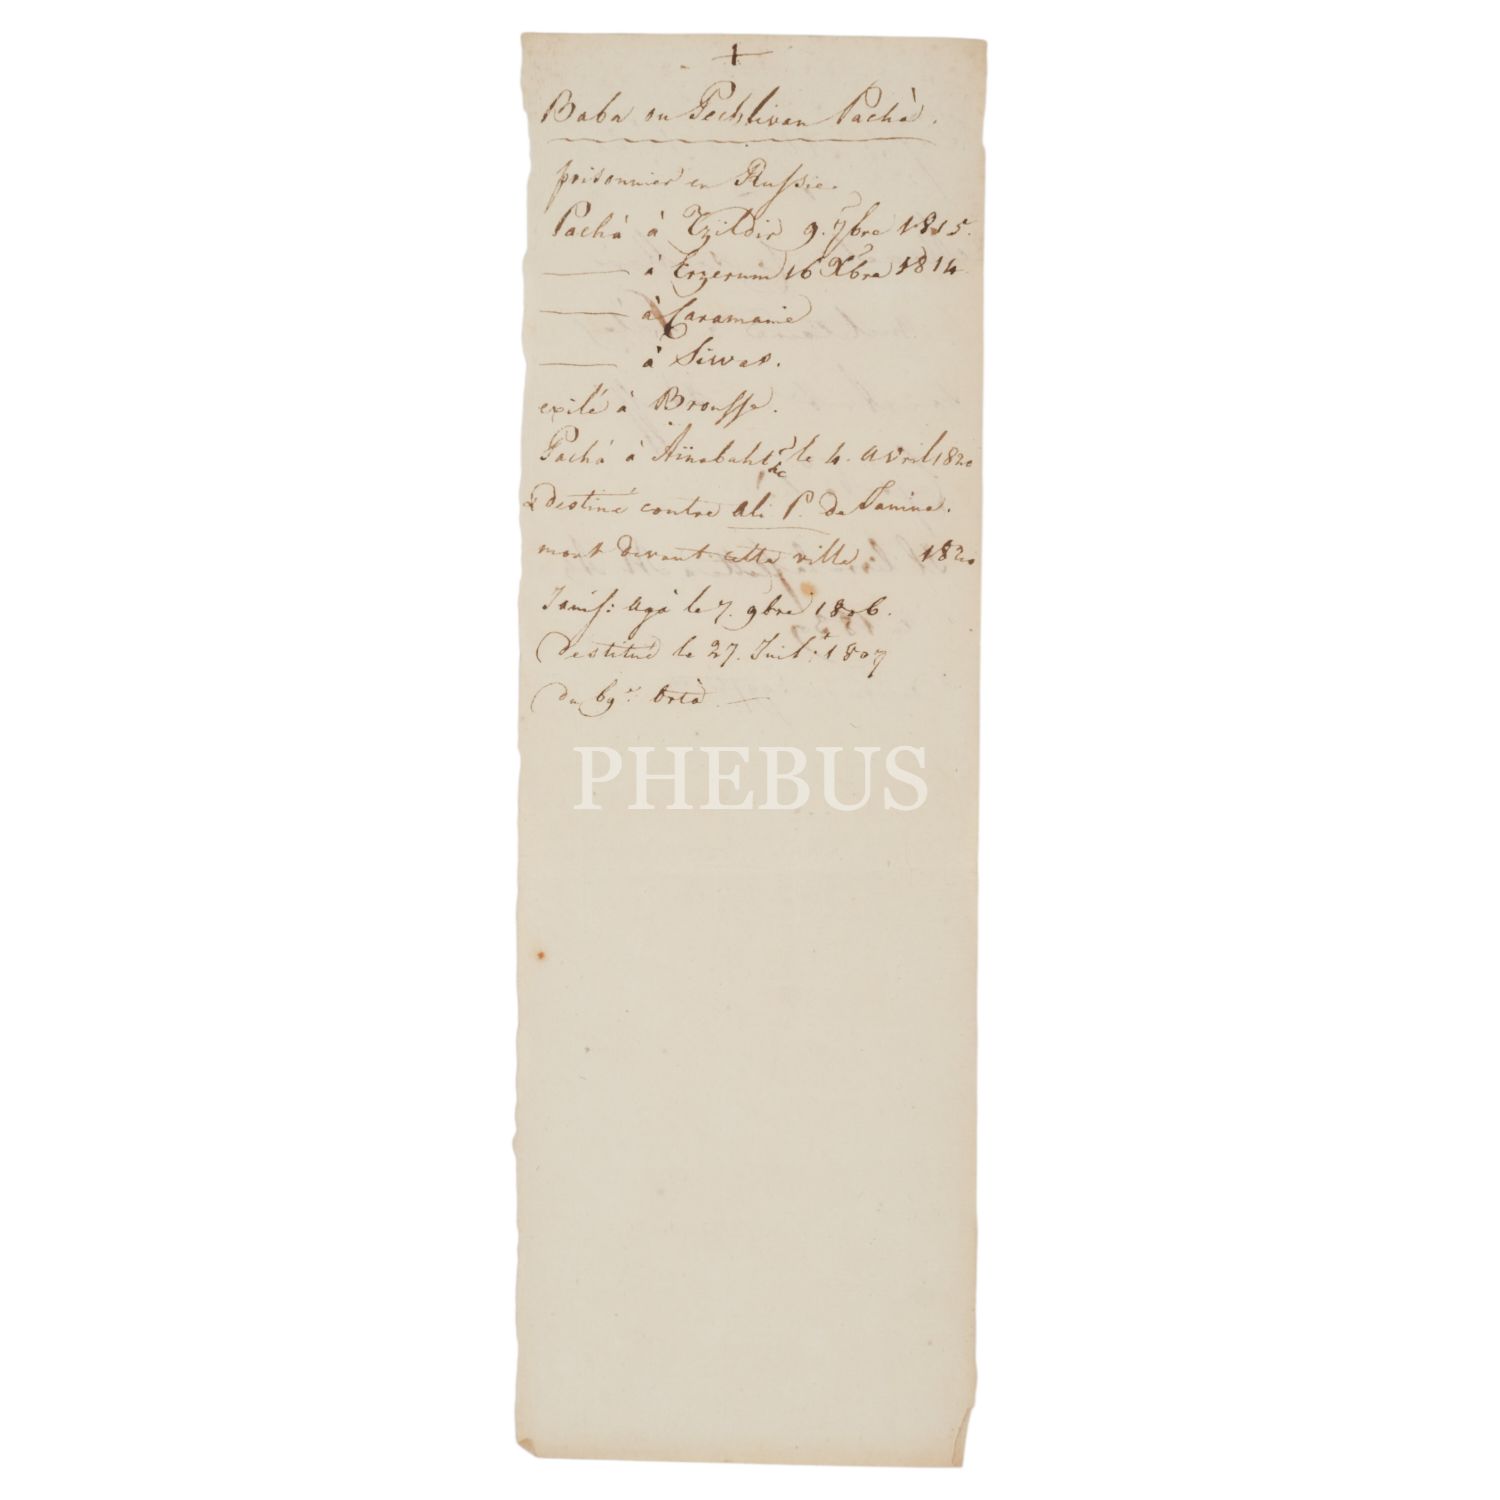 +
Baba ou Pechlivan Pachà.
prisonnier en Russie.
Pachà à Tzildir 9. 7bre 1815.
—— à Erzerum 16 Xbre 1814
—— à Caramanie
—— à Siwas.
exilé à Brousse.
Pachà à Aïnabahte le 4. Avril 1820
&c
& destiné contre Ali P. de Janina.
mort devant cette ville 1820
Janiss: Agà le 7. 9bre 1806.
Destitué le 27. Juilt 1807
du 69e Ortà. —
PHEBUS